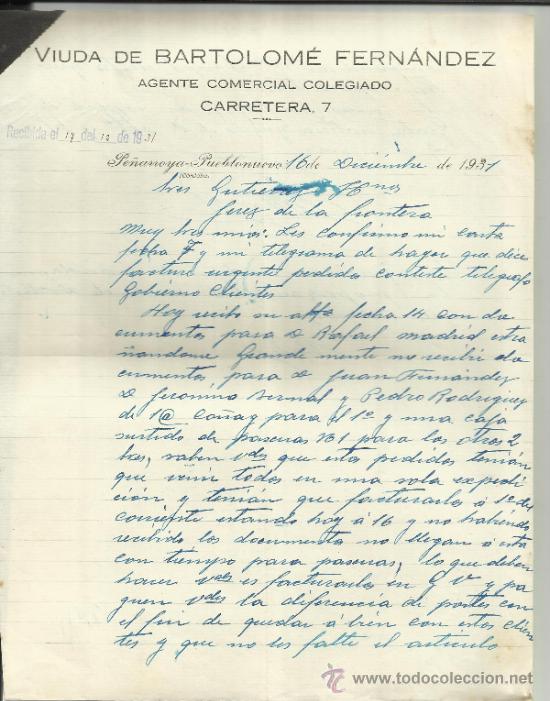 VIUDA DE BARTOLOMÉ FERNÁNDEZ
AGENTE COMERCIAL COLEGIADO
CARRETERA, 7
Recibida el 17 del 12 de 1931
Peñarroya-Pueblonuevo 16 de Diciembre de 1931
Sres Gutiérrez Hnos
Jerez de la frontera
Muy Sres mios: Les confirmo mi carta
fecha 7 y mi telegrama de hayer que dice
facture urgente pedido conteste telegrafo
Gobierno Clientes
Hoy recibo su atta fecha 14 con do
cumentos para D Rafael madrid estra
ñandome Grande mente no recibir do
cumentos para D Juan Fernández
D Jeronimo Bernal y Pedro Rodriguez
de 1@ coñag para el 1º y una caja
surtido de pascuas 131 para los otros 2
tres, saben Vdes que estos pedidos tenian
que venir todos en una sola expedi
ción y tenian que facturarlos á 1º del
corriente estando hoy á 16 y no habiendo
recibido los documentos no llegan á esta
con tiempo para pascuas, lo que deben
hacer Vdes es facturarlos en G V y pa
guen Vdes la diferencia de portes con
el fin de quedar á bien con estos clien
tes y que no les falte el articulo
todocoleccion
www.todocoleccion.net